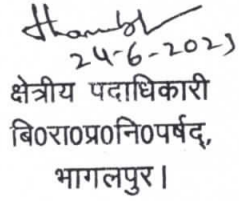 24-6-2023
क्षेत्रीय पदाधिकारी
बि0रा0प्र0नि0पर्षद्,
भागलपुर।